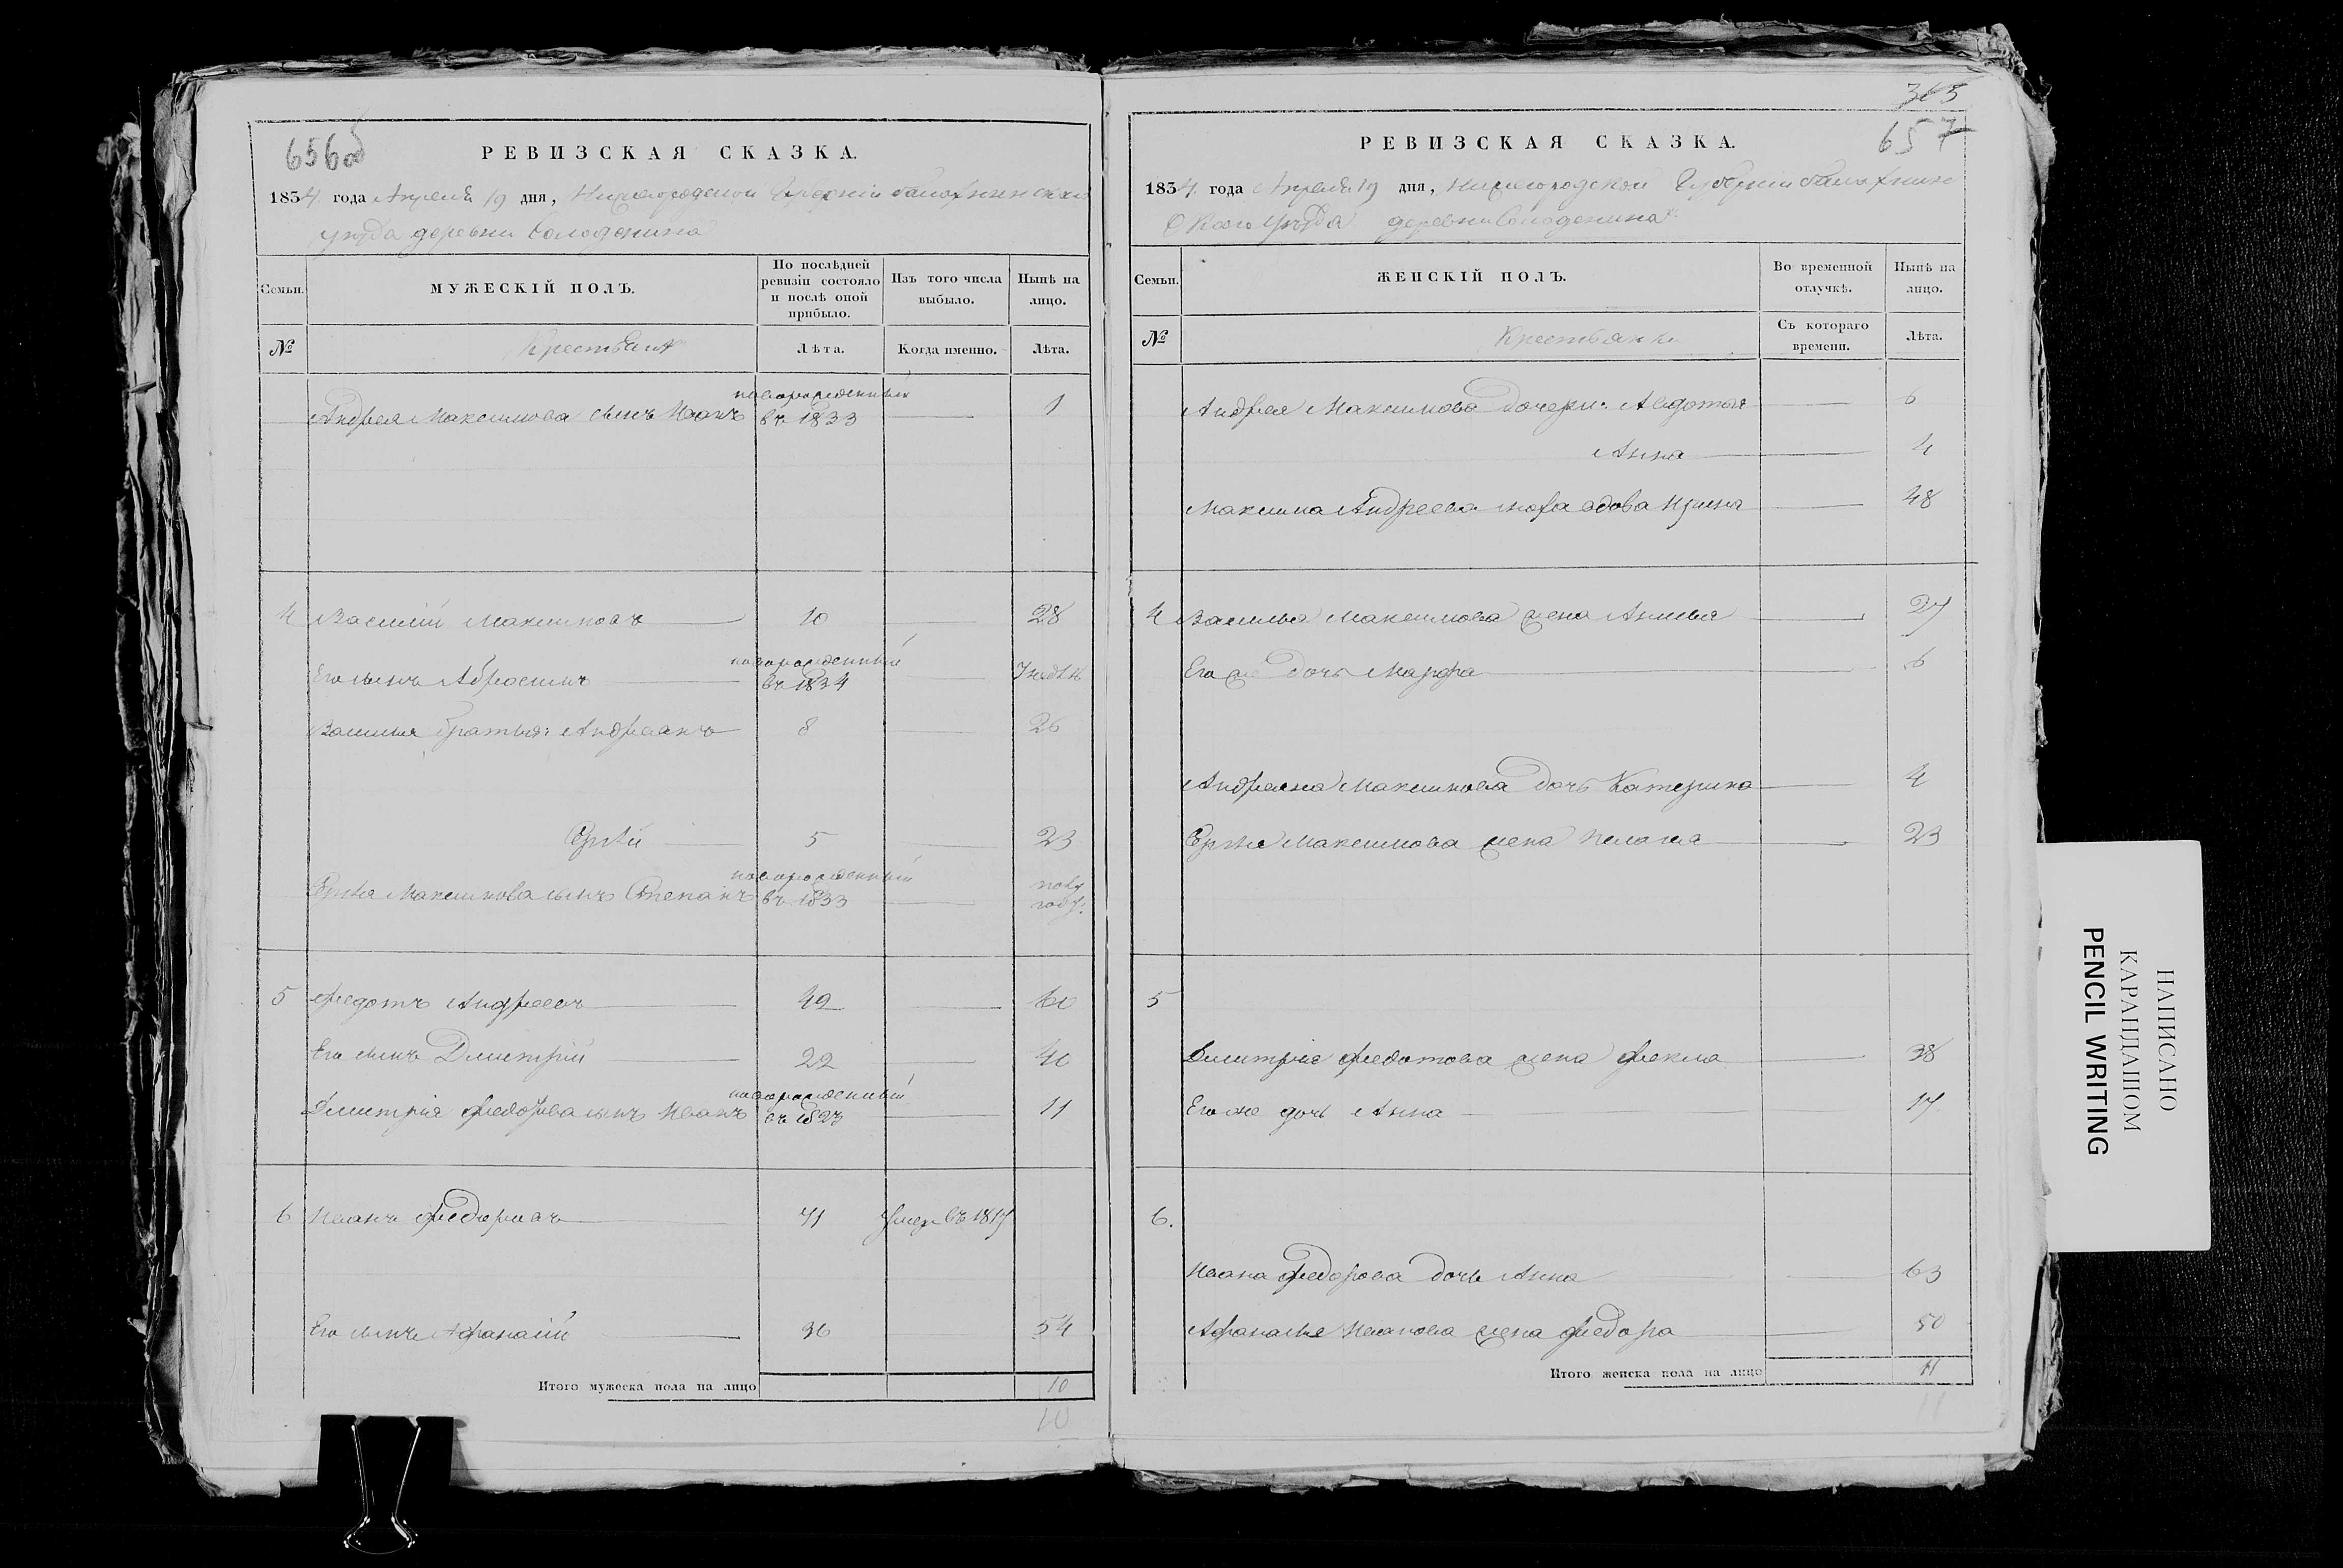 656об
РЕВИЗСКАЯ СКАЗКА.
1834 года Апреля 19 дня, Нижегородской Губернии Балахнинскаго
уѣзда деревни Солоденина
Семьи.
МУЖЕСКІЙ ПОЛЪ.
По послѣдней
ревизіи состояло
и послѣ оной
прибыло.
Изъ того числа
выбыло.
Нынѣ на
лицо.
№
Крестьянъ
Лѣта.
Когда именно.
Лѣта.
новорожденный
Андрея Максимова сынъ Иванъ въ 1833 1
4 Василій Максимовъ 10 28
новорожденный
Его сынъ Абросимъ въ 1834
Василья братья: Андреанъ 8 26
Ергѣй 5 23
новорожденный
Ергѣя Максимова сынъ Степанъ въ 1833
полу
году
5 Федотъ Андреевъ 42 60
Его сынъ Дмитрій 22 40
новорожденный
Дмитрія Федотова сынъ Иванъ въ 1823 11
6 Иванъ Федоровъ 71 умеръ въ 1817
Его сынъ Афанасій 36 54
Итого мужеска пола на лицо 10
10
363
657
РЕВИЗСКАЯ СКАЗКА.
1834 года Апреля 19 дня, Нижегородской Губерніи Балахнин
скаго уѣзда деревни Солоденина
Семьи.
ЖЕНСКІЙ ПОЛЪ.
Во временной
отлучкѣ.
Нынѣ на
лицо.
№
Крестьянки
Съ котораго
времени.
Лѣта.
Андрея Максимова дочери: Авдотья 6
Анна 4
Максима Андреева сноха вдова Ирина 48
4 Василья Максимова жена Анисья 27
Его же дочь Марфа 6
Андреяна Максимова дочь Катерина 4
Ергѣя Максимова жена Пелагея 23
5
Дмитрія Федотова жена Фекла 38
Его же дочь Анна 17
6.
Ивана Федорова дочь Анна 63
Афанасья Иванова жена Федора 50
Итого женска пола на лицо 11
11
НАПИСАНО
КАРАНДАШОМ
PENCIL WRITING